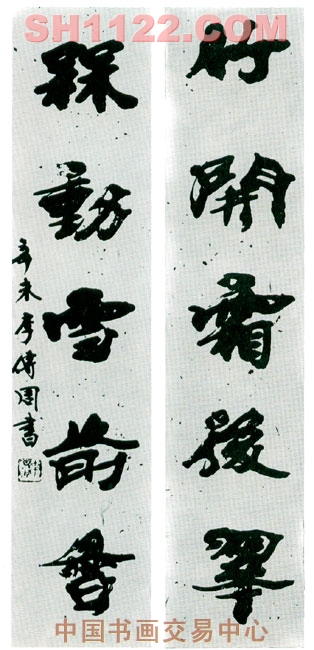 SH1122.COM
竹開霜後翠
槑動雪前香
辛未李傳周書
中国书画交易中心